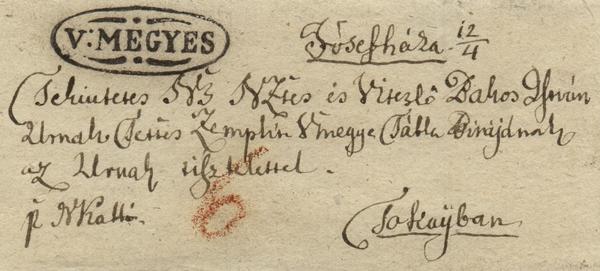 V: MEGYES
Jósefháza 12/4
Tekintetes Nz NZtes és Vitézlő Bakos István
Urnak Ttes Zemplin Vmegye Tábla Birájának
az Urnak tisztelettel.
p NKálló.
6
Tokayban